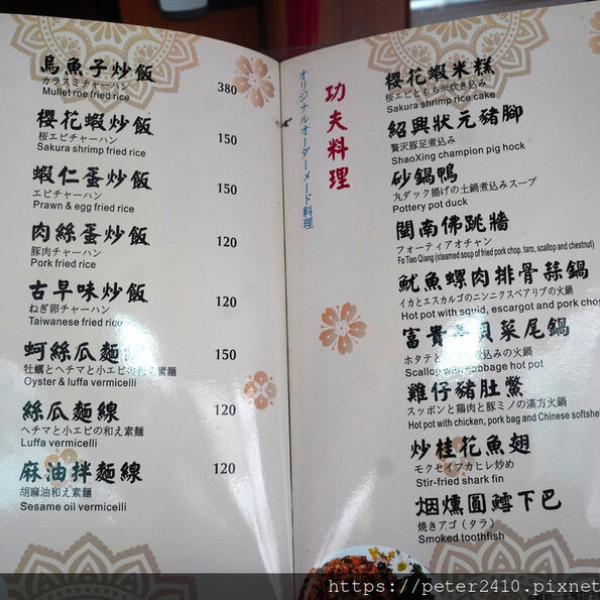 烏魚子炒飯
カラスミチャーハン
Mullet roe fried rice
380
櫻花蝦炒飯
桜エビチャーハン
Sakura shrimp fried rice
150
蝦仁蛋炒飯
エビチャーハン
Prawn & egg fried rice
150
肉絲蛋炒飯
豚肉チャーハン
Pork fried rice
120
古早味炒飯
ねぎ卵チャーハン
Taiwanese fried rice
120
蚵絲瓜麵
牡蠣とヘチマと小エビの和え素麺
Oyster & luffa vermicelli
150
絲瓜麵線
ヘチマと小エビの和え素麺
Luffa vermicelli
120
麻油拌麵線
胡麻油和え素麺
Sesame oil vermicelli
120
功夫料理
オリジナルオーダーメード料理
櫻花蝦米糕
桜エビともち米炊き込み
Sakura shrimp rice cake
紹興狀元豬腳
贅沢豚足煮込み
ShaoXing champion pig hock
砂鍋鴨
丸ダック揚げの土鍋煮込みスープ
Pottery pot duck
閩南佛跳牆
フォーティアオチャン
Fo Tiao Qiang (steamed soup of fried pork chop, taro, scallop and chestnut)
魷魚螺肉排骨蒜鍋
イカとエスカルゴのニンニクスペアリブの火鍋
Hot pot with squid, escargot and pork chop
富貴 貝菜尾鍋
ホタテと 煮込みの火鍋
Scallop with cabbage hot pot
雞仔豬肚鱉
スッポンと鶏肉と豚ミノの漢方火鍋
Hot pot with chicken, pork bag and Chinese softshe
炒桂花魚翅
モクセイフカヒレ炒め
Stir-fried shark fin
烟燻圓鱈下巴
焼きアゴ（タラ）
Smoked toothfish
https://peter2410.pixnet